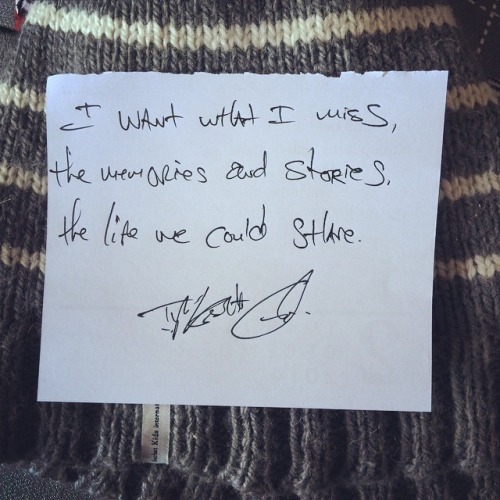 I WANT WHAT I MISS,
the memories and stories,
the life we could share.
Kids